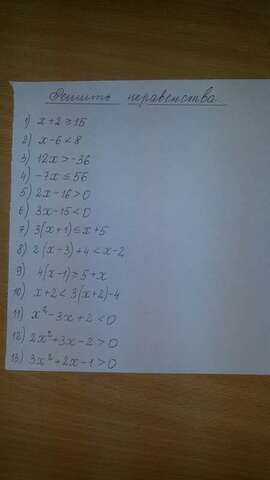 Решить неравенства
1) x+2≥15
2) x-6<8
3) 12x>-36
4) -7x≤56
5) 2x-16>0
6) 3x-15<0
7) 3(x+1)≤x+5
8) 2(x-3)+4<x-2
9) 4(x-1)≥5+x
10) x+2<3(x+2)-4
11) x²-3x+2<0
12) 2x²+3x-2>0
13) 3x²+2x-1>0